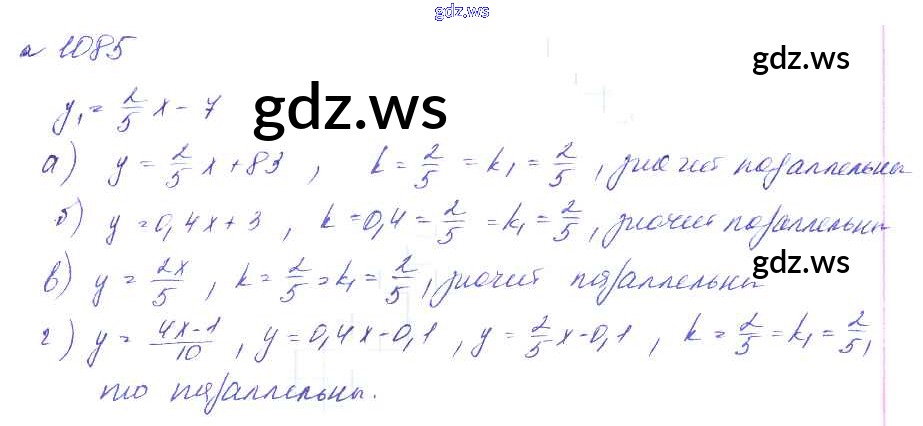 gdz.ws
№ 1085
gdz.ws
y₁ = 2/5 x - 7
gdz.ws
а) y = 2/5 x + 83, k = 2/5 = k₁ = 2/5, значит параллельны
б) y = 0,4x + 3, k = 0,4 = 2/5 = k₁ = 2/5, значит параллельны
gdz.ws
в) y = 2x/5, k = 2/5 = k₁ = 2/5, значит параллельны
г) y = 4x-1/10, y = 0,4x - 0,1, y = 2/5 x - 0,1, k = 2/5 = k₁ = 2/5,
то параллельны.